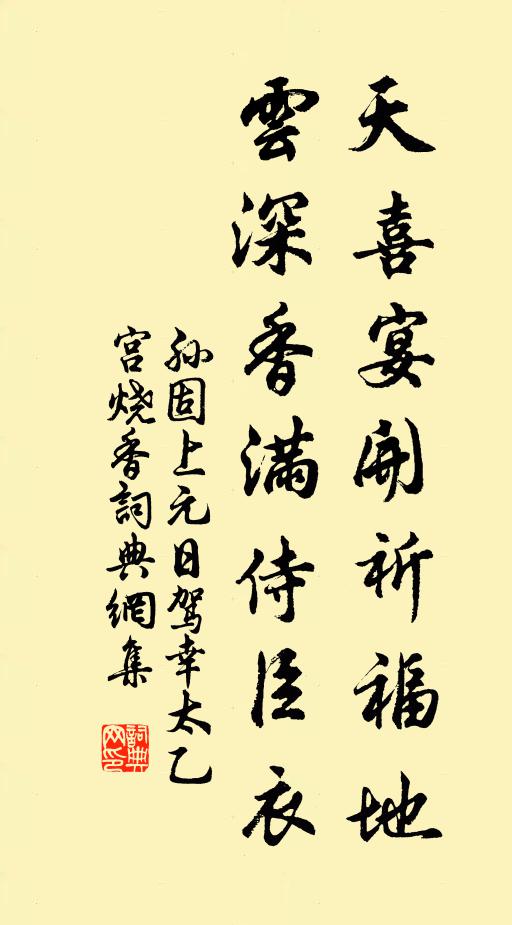 天喜宴開祈福地
雲深香滿侍臣衣
孙固上元日駕幸太乙
宮烧香詞典網集
詞典
网印